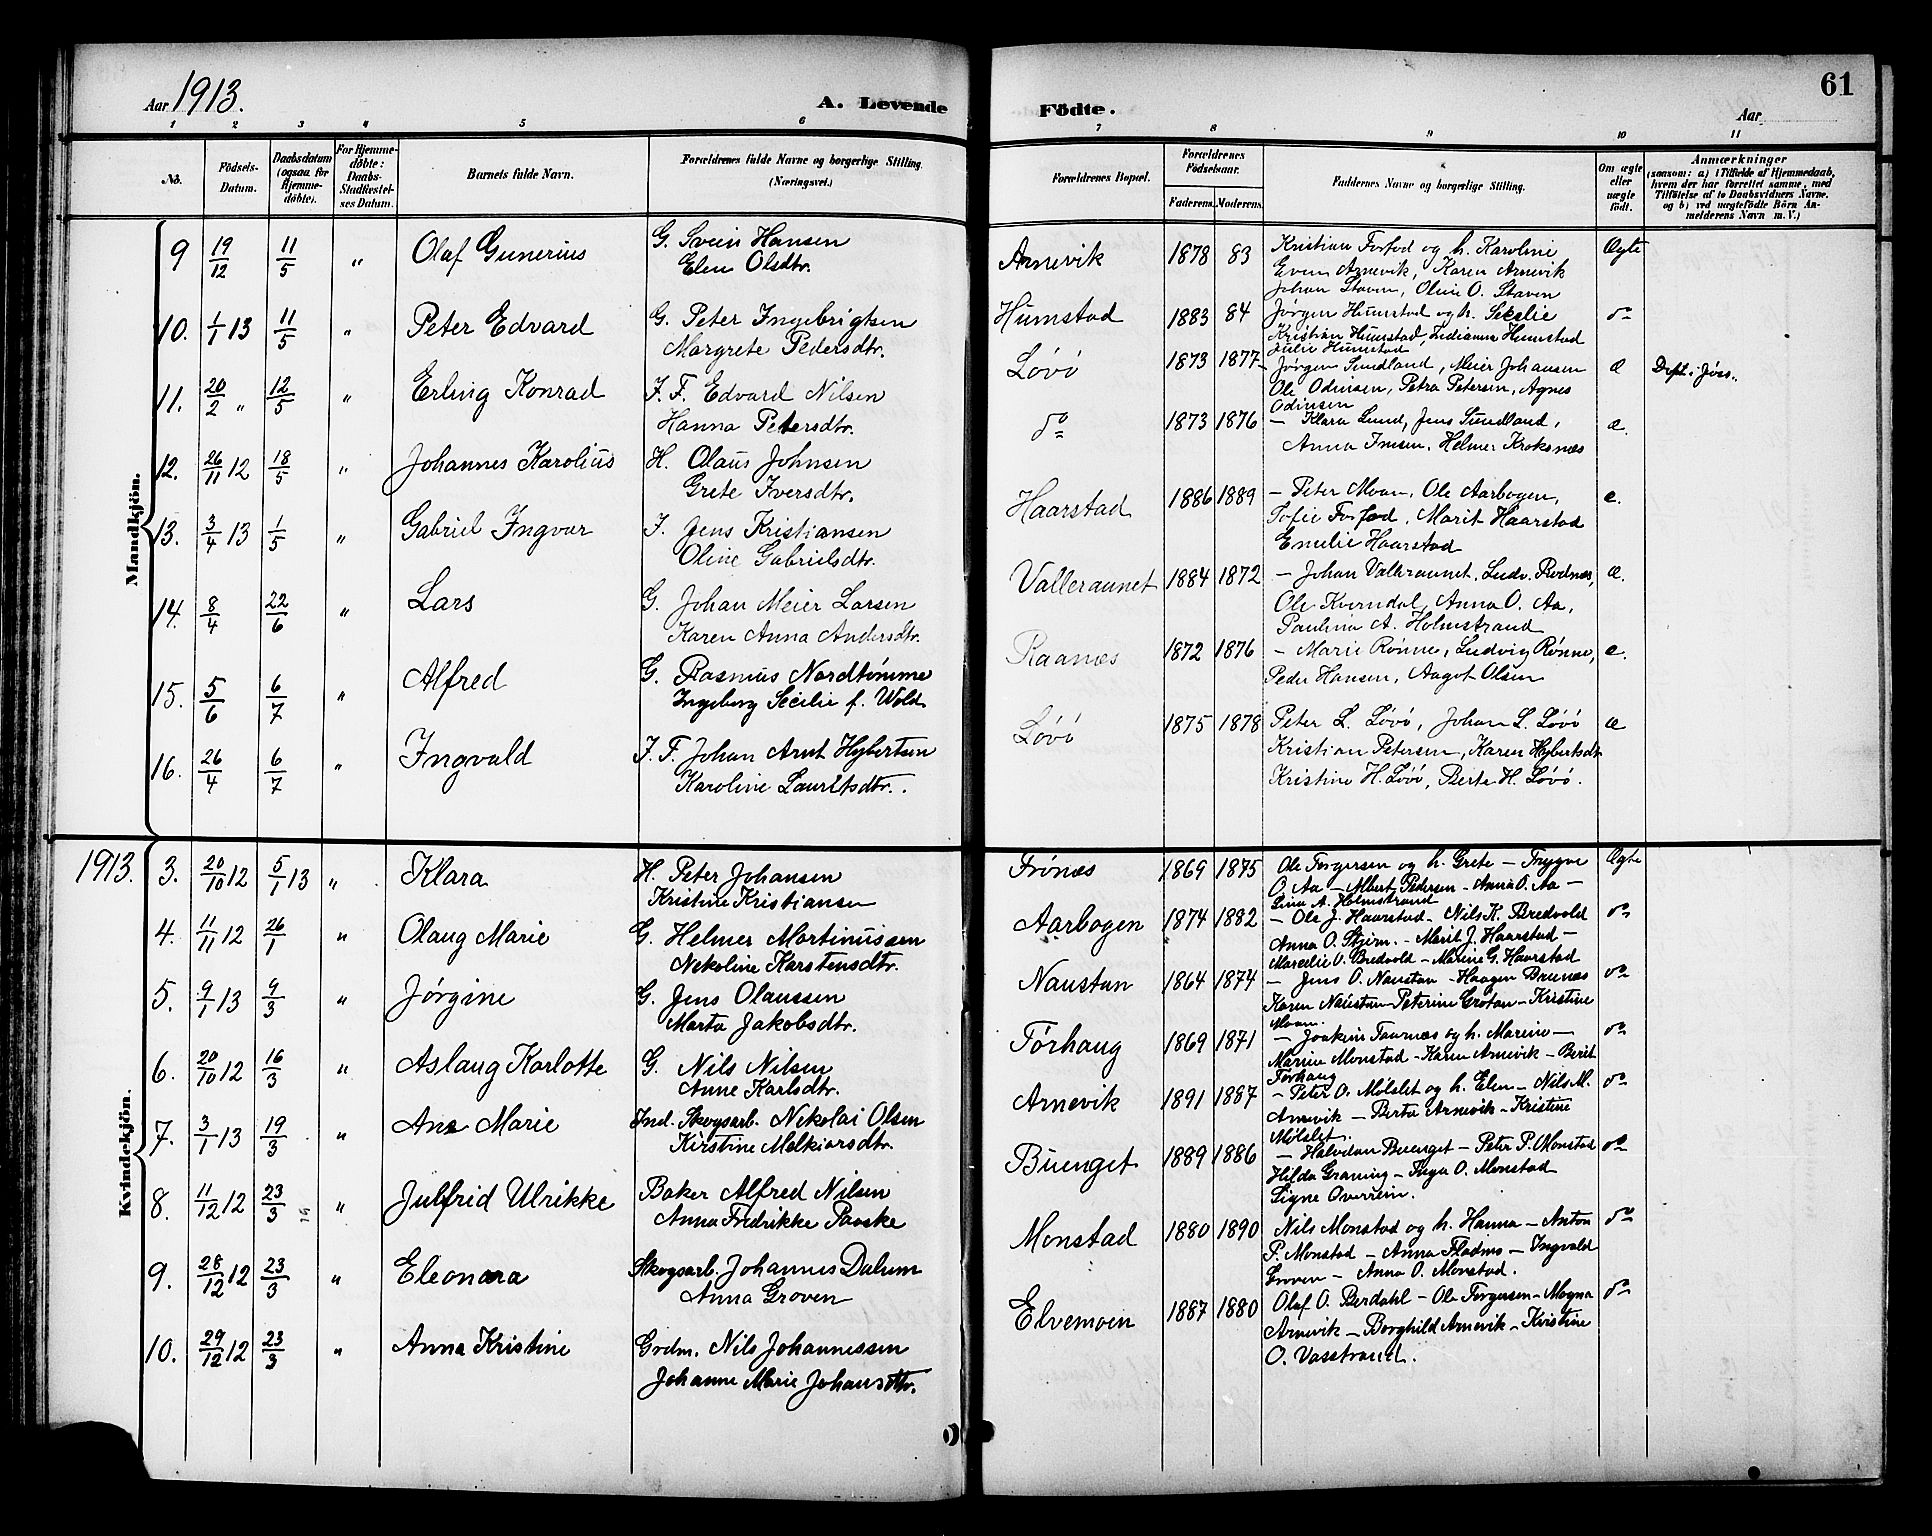 Aar 1913.
A. Levende
Födte.
Aar
61
1 2 3 4 5 6 7 8 9 10 11
No.
Födsels-Datum.
Daabsdatum (ogsaa for Hjemme-döbte).
For Hjemme-döbte: Daabs-Stadfæstel-ses Datum.
Barnets fulde Navn.
Forældrenes fulde Navne og borgerlige Stilling.
(Næringsvei.)
Forældrenes Bopæl.
Forældrenes Födselsaar.
Faderens. Moderens.
Faddernes Navne og borgerlige Stilling.
Om ægte eller uægte födt.
Anmærkninger
(saasom: a) i Tilfælde af Hjemmedaab, hvem der har forrettet samme, med Tilföielse af to Daabsvidners Navne, og b) ved uægtefödte Börn An-melderens Navn m. V.)
Mandkjön.
9 19/12 11/5 " Olaf Gunerius G. Svein Hansen
Elen Olsdtr.
Arnevik 1878 83 Kristian Forfod og h. Karoline Ægte
Even Arnevik, Karen Arnevik
Johan Staven, Oline O. Staven
10. 1/1 13 11/5 " Peter Edvard G. Peter Ingebrigtsen
Margrete Pedersdtr.
Humstad 1883 84 Jørgen Humstad og h. Sesilie do
Kristian Humstad, Indianna Humstad
Julie Humstad
11. 20/2 " 12/5 " Erling Konrad I. F. Edvard Nilsen
Hanna Petersdtr.
Løvö 1873 1877 - Jørgen Sundland, Meier Johansen æ Dpt. i Jöss.
Ole Odinsen, Petra Petersen, Agnes
Odinsen
12. 26/11 12 18/5 " Johannes Karolius H. Olaus Johnsen
Grete Iversdtr.
do 1873 1876 - Klara Lund, Jens Sundland, æ.
Anna Imsen, Helmer Kroksnæs
13. 3/4 13 1/5 " Gabriel Ingvar I. Jens Kristiansen
Oline Gabrielsdtr.
Haarstad 1886 1889 - Peter Moan, Ole Aarbogen, æ.
Sofie Forfod, Marit Haarstad
Emelie Haarstad
14. 8/4 22/6 " Lars G. Johan Meier Larsen
Karen Anna Andersdtr.
Valleraunet 1884 1872 - Johan Valleraunet, Ludv. Rodnæs, æ.
Ole Kverndal, Anna O. Aa,
Paulina A. Holmstrand
15. 5/6 6/7 " Alfred G. Rasmus Nordtømme
Ingeborg Secilie f. Wold
Raanæs 1872 1876 - Marie Rønne, Ludvig Rønne, æ.
Peder Hansen, Aagot Olsen
16. 26/4 6/7 " Ingvald I. F. Johan Arnt Hybertsen
Karoline Lauritsdtr.
Løvö 1875 1878 Peter L. Løvö, Johan L. Løvö æ
Kristian Petersen, Karen Hybertsdtr
Kristine H. Løvö, Berte H. Løvö.
1913.
Kvindekjön.
3. 20/10 12 5/1 13 " Klara H. Peter Johansen
Kristine Kristiansen
Frönæs 1869 1875 Ole Torgersen og h. Grete - Trygve Ægte
O. Aa - Albert Pedersen - Anna O. Aa -
Lina A. Holmstrand
4. 11/11 12 26/1 " Olaug Marie G. Helmer Martinussen
Nekoline Karstensdtr.
Aarbogen 1874 1882 - Ole J. Haarstad - Nils K. Bredvold do
Anna O. Stjern. - Marit J. Haarstad -
Marcelie O. Bredvold - Marine G. Haarstad
5. 9/1 13 9/3 " Jørgine G. Jens Olaussen
Marta Jakobsdtr.
Naustan 1864 1874 - Jens O. Naustan - Haagen Brunæs do
Karen Naustan - Peterine Grötan - Kristine
Moan.
6. 20/10 12 16/3 " Aslaug Karlotte G. Nils Nilsen
Anne Karlsdtr.
Tørhaug 1869 1871 - Joakim Taarnæs og h. Marine - do
Marine Monstad - Karen Arnevik - Berit
Tørhaug
7. 3/1 13 19/3 " Ane Marie Ind. Skogsarb. Nekolai Olsen
Kirstine Melkiorsdtr.
Arnevik 1891 1887 - Peter O. Mølslet og h. Elen - Nils M. do
Arnevik - Berta Arnevik - Kristine
Mølslet.
8. 11/12 12 23/3 " Julfrid Ulrikke Baker Alfred Nilsen
Anna Fredrikke Paaske
Buenget 1889 1886 - Halvdan Buenget - Peter P. Monstad do
Hilda Graning - Inga O. Monstad
Signe Overrein.
9. 28/12 12 23/3 " Eleonora Skogsarb. Johannes Dalum
Anna Groven
Monstad 1880 1890 Nils Monstad og h. Hanna - Anton do
P. Monstad - Anna Fladmo - Ingvald
Groven - Anna O. Monstad.
10. 29/12 12 23/3 " Anna Kristine Grdm. Nils Johannessen
Johanne Marie Johansdtr.
Elvemoen 1887 1880 Olaf O. Berdahl - Ole Torgersen - Magna do
Arnevik - Borghild Arnevik - Kristine
O. Vasstrand.